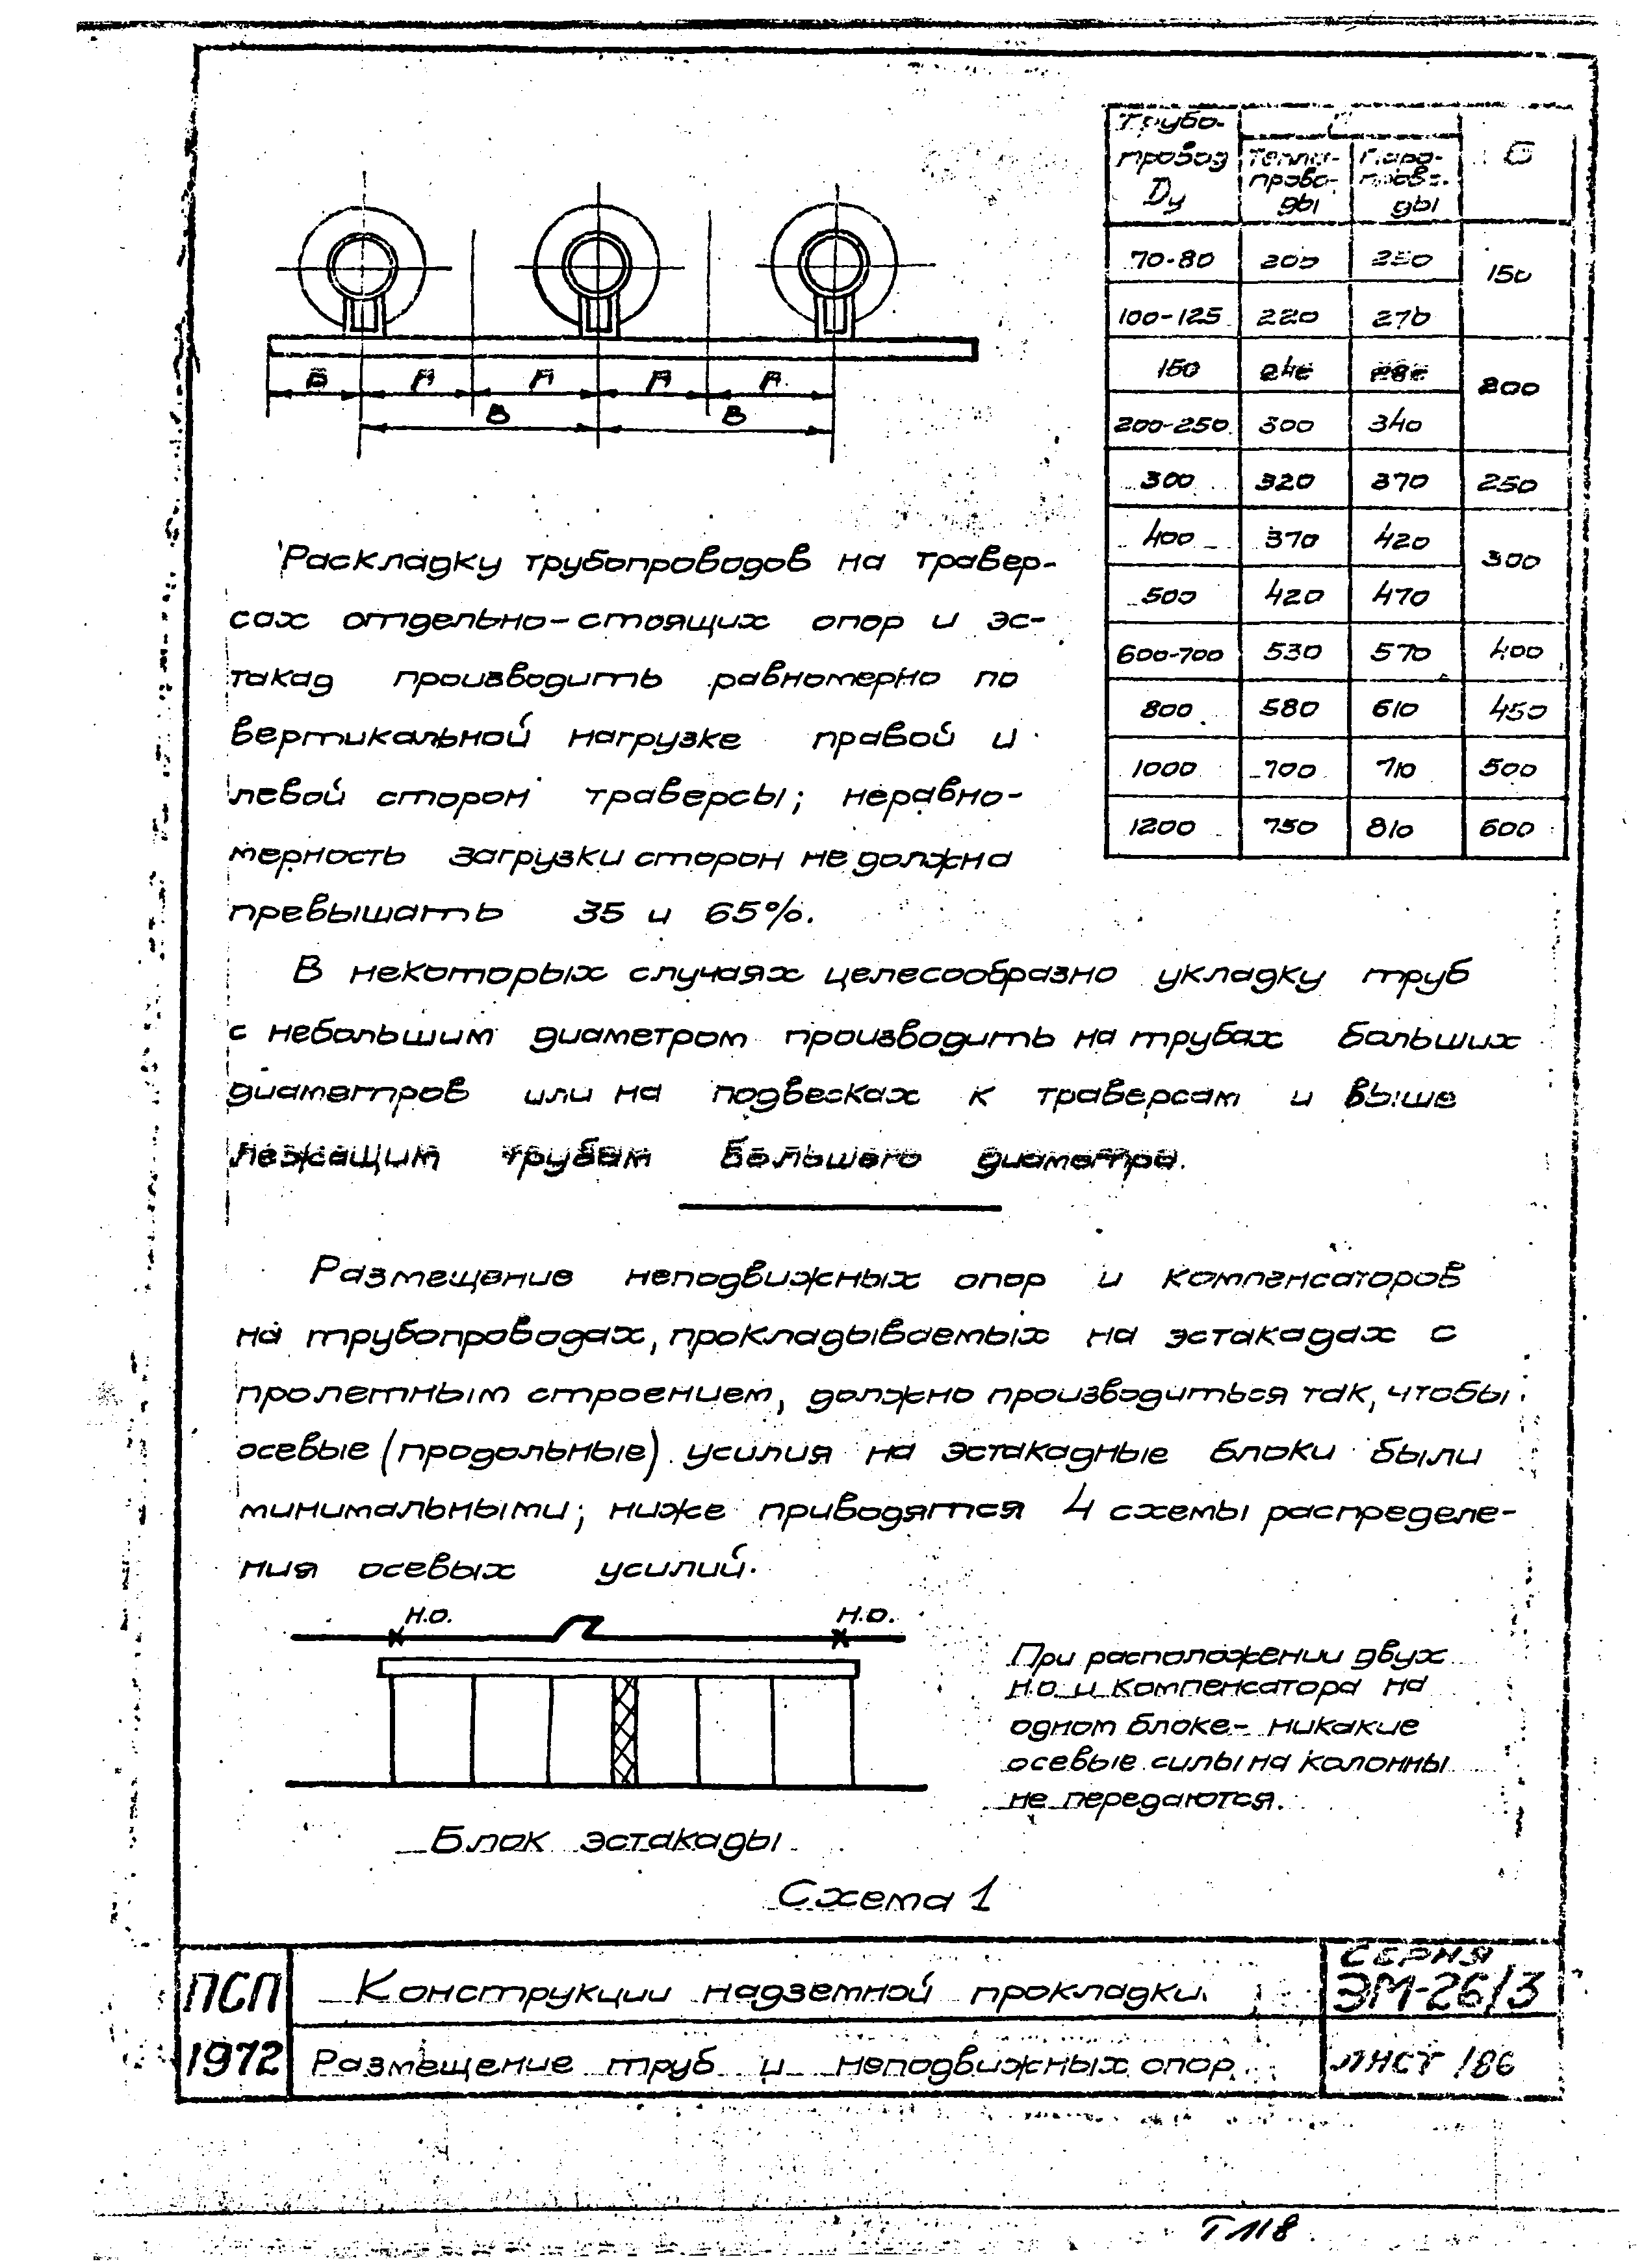 Трубо-
провод
Ду
Тепло-
прово-
ды
Паро-
прово-
ды
Б
70-80 200 250 150
100-125 220 270
150 240 280 200
200-250 300 340
300 320 370 250
400 370 420 300
500 420 470
600-700 530 570 400
800 580 610 450
1000 700 710 500
1200 750 810 600
Б А А А А
В В
Раскладку трубопроводов на травер-
сах отдельно-стоящих опор и эс-
такад производить равномерно по
вертикальной нагрузке правой и
левой сторон траверсы; неравно-
мерность загрузки сторон не должна
превышать 35 и 65%.
В некоторых случаях целесообразно укладку труб
с небольшим диаметром производить на трубах больших
диаметров или на подвесках к траверсам и выше
лежащим трубам большего диаметра.
Размещение неподвижных опор и компенсаторов
на трубопроводах, прокладываемых на эстакадах с
пролетным строением, должно производиться так, чтобы
осевые (продольные) усилия на эстакадные блоки были
минимальными; ниже приводятся 4 схемы распределе-
ния осевых усилий.
Н.О. Н.О.
При расположении двух
н.о и компенсатора на
одном блоке - никакие
осевые силы на колонны
не передаются.
Блок эстакады
Схема 1
ПСП
1972
Конструкции надземной прокладки.
Размещение труб и неподвижных опор
СЕРИЯ
ЭМ-26/3
ЛИСТ 186
Т118